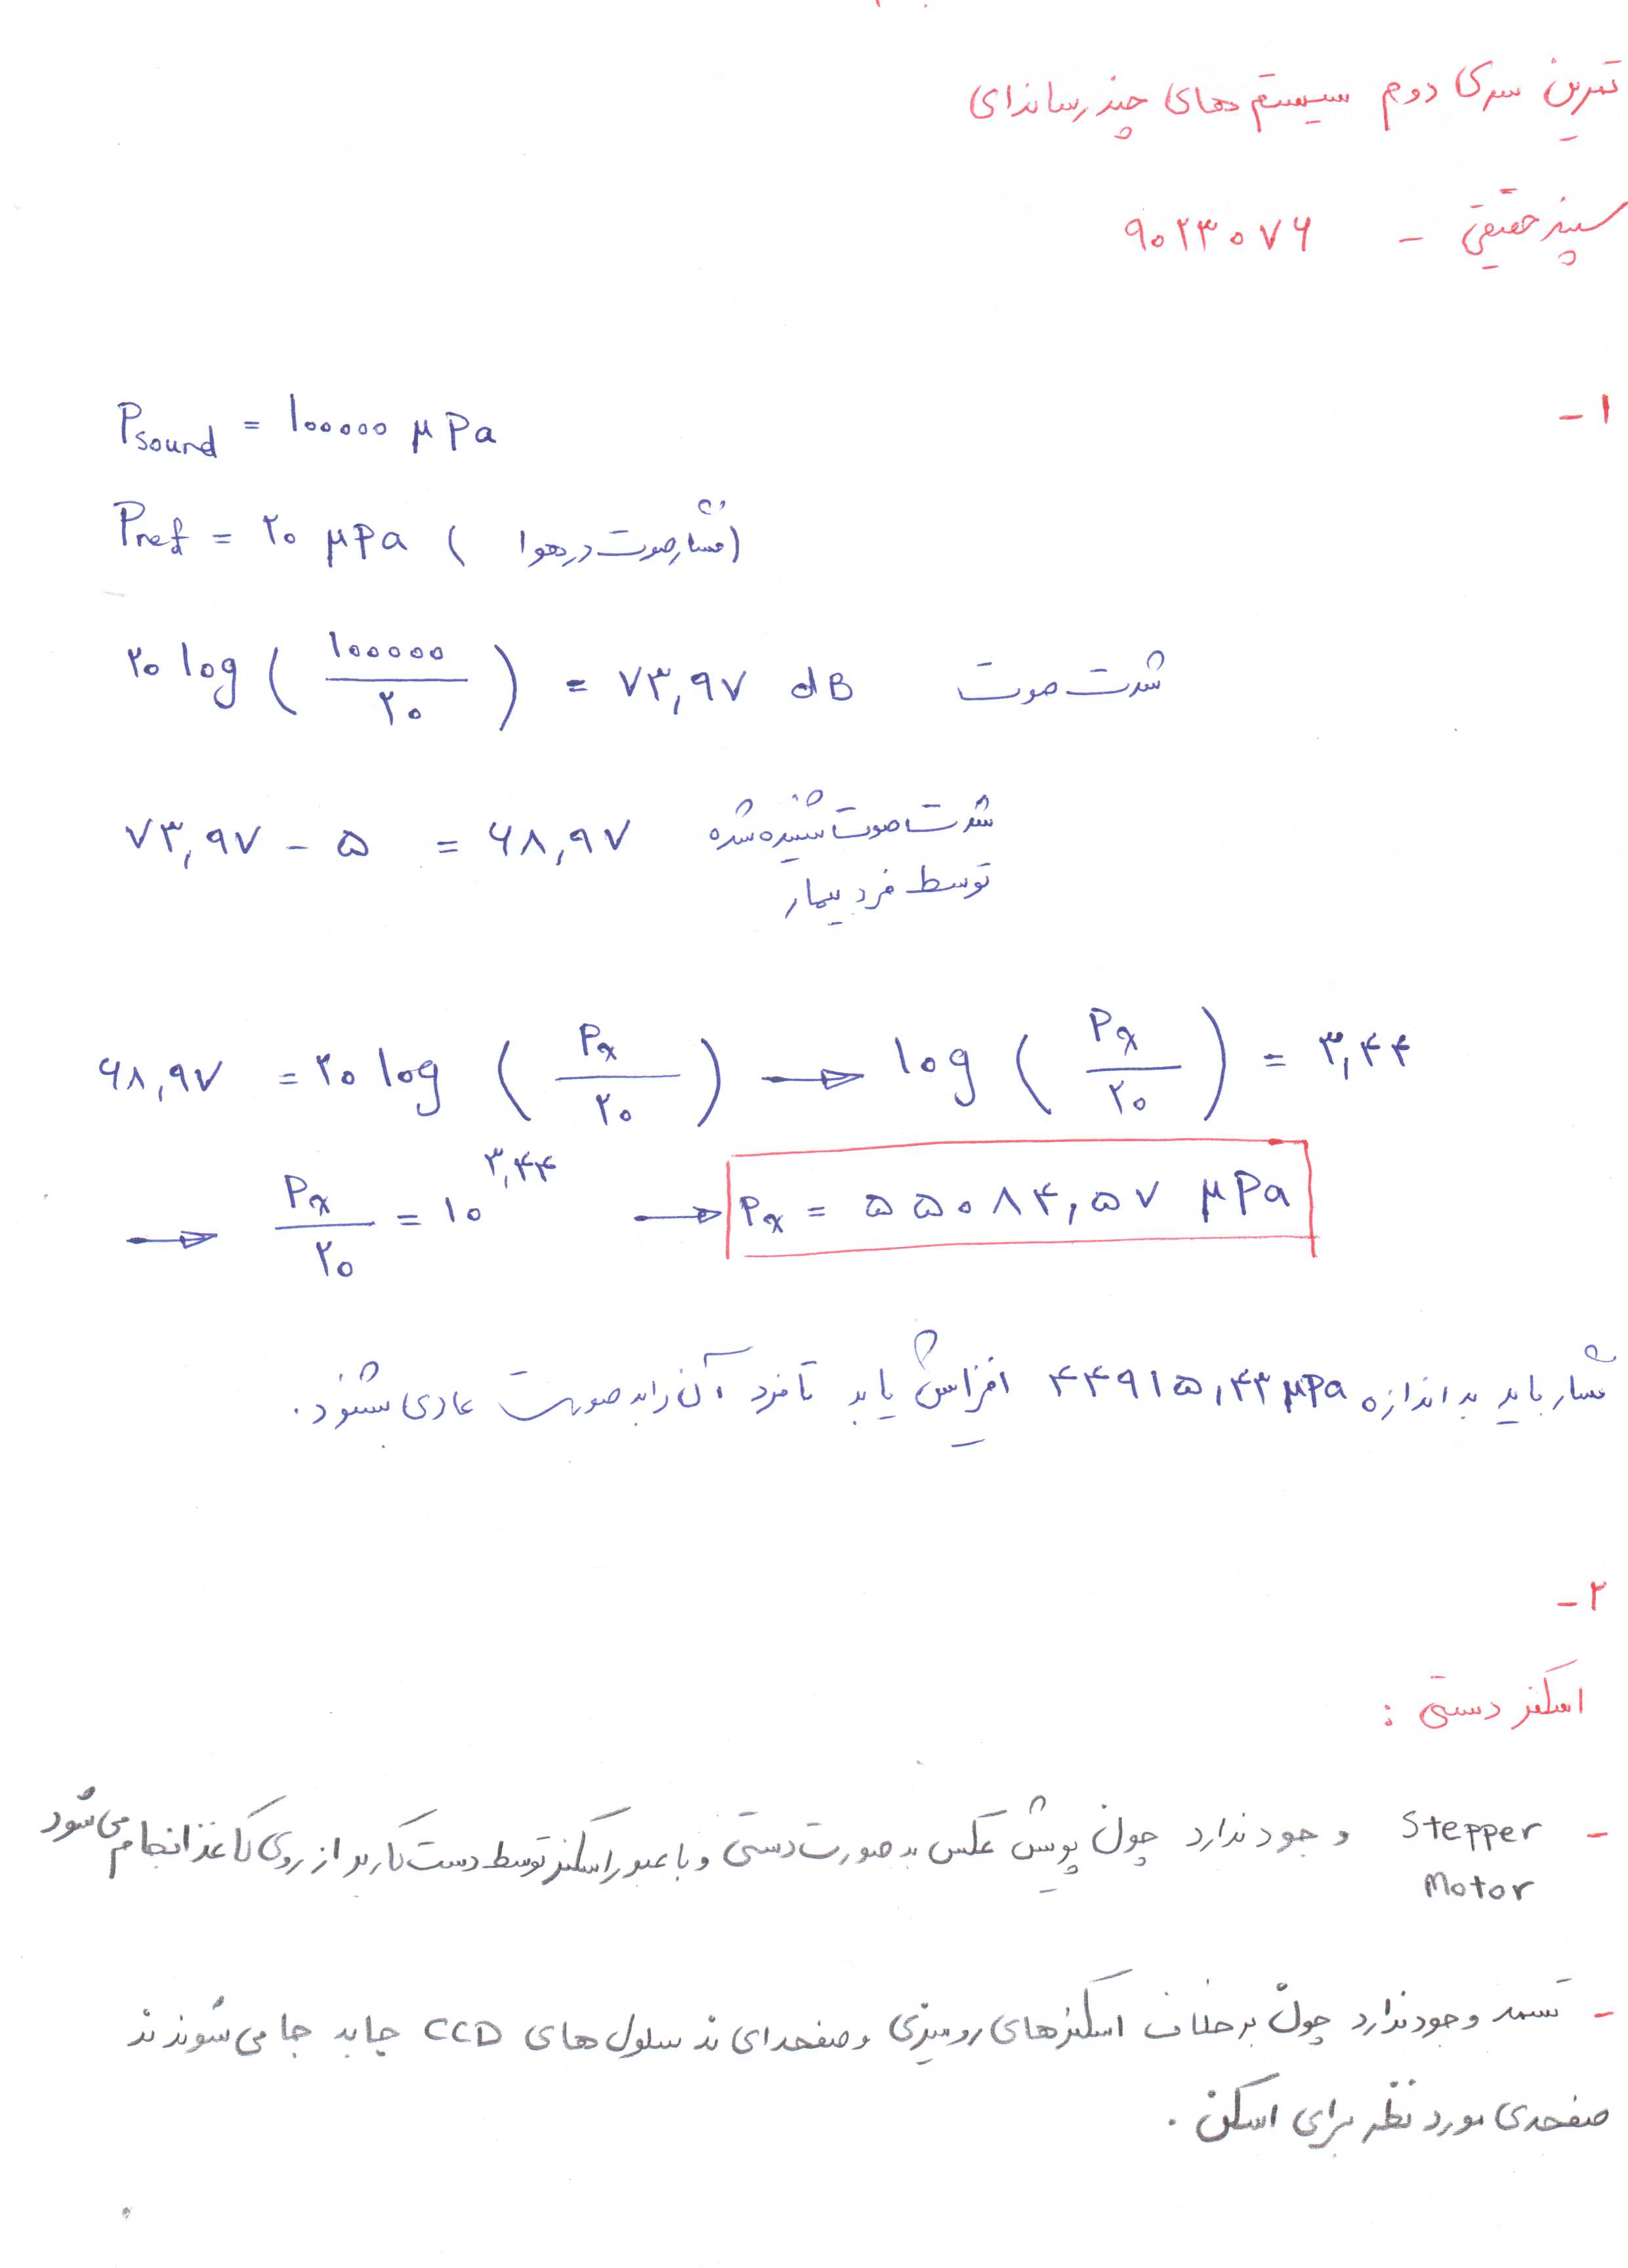 تمرین سری دوم سیستم های چند رسانه‌ای
سپند حقیقی - ۹۰۲۳۰۷۶
۱-
Psound = ۱۰۰۰۰۰ μPa
Pref = ۲۰ μPa (فشار صوت در هوا)
۲۰ log (۱۰۰۰۰۰ / ۲۰) = ۷۳,۹۷ dB شدت صوت
۷۳,۹۷ - ۵ = ۶۸,۹۷ شدت صوت شنیده شده
توسط فرد بیمار
۶۸,۹۷ = ۲۰ log (Px / ۲۰) → log (Px / ۲۰) = ۳,۴۴
→ Px / ۲۰ = ۱۰^۳,۴۴ → Px = ۵۵۰۸۴,۵۷ μPa
فشار باید به اندازه ۴۴۹۱۵,۴۳ μPa افزایش یابد تا فرد آن را به صورت عادی بشنود.
۲-
اسکنر دستی :
- Stepper Motor وجود ندارد چون پویش عکس به صورت دستی و با عبور اسکنر توسط دست کاربر از روی کاغذ انجام می شود
- تسمه وجود ندارد چون بر خلاف اسکنرهای رومیزی و صفحه‌ای نه سلول های CCD جابه جا می شوند نه
صفحه‌ی مورد نظر برای اسکن.